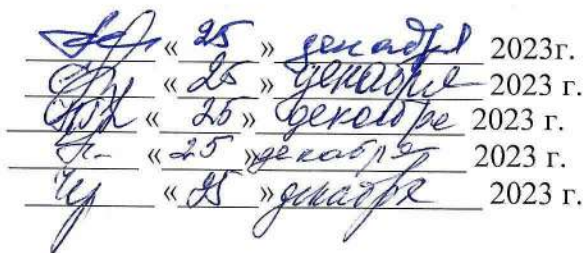 « 25 » декабря 2023г.
« 25 » декабря 2023 г.
« 25 » декабре 2023 г.
« 25 » декабря 2023 г.
« 25 » декабря 2023 г.